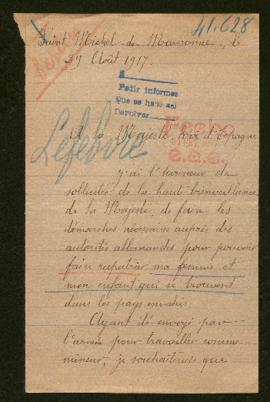 41.628
Saint Michel de Maurienne, le
27 Août 1917.
Pedir informes
que se hallo
Devolver
A sa Majesté, Roi d'Espagne
Lefebvre
J'ai l'honneur de
solliciter de la haute bienveillance
de Sa Majesté de faire les
démarches nécessaires auprès des
autorités allemandes pour pouvoir
faire rapatrier ma femme et
mon enfant qui se trouvent
dans les pays envahis
Ayant été envoyé par
l'armée pour travailler comme
mineur, je souhaiterais que